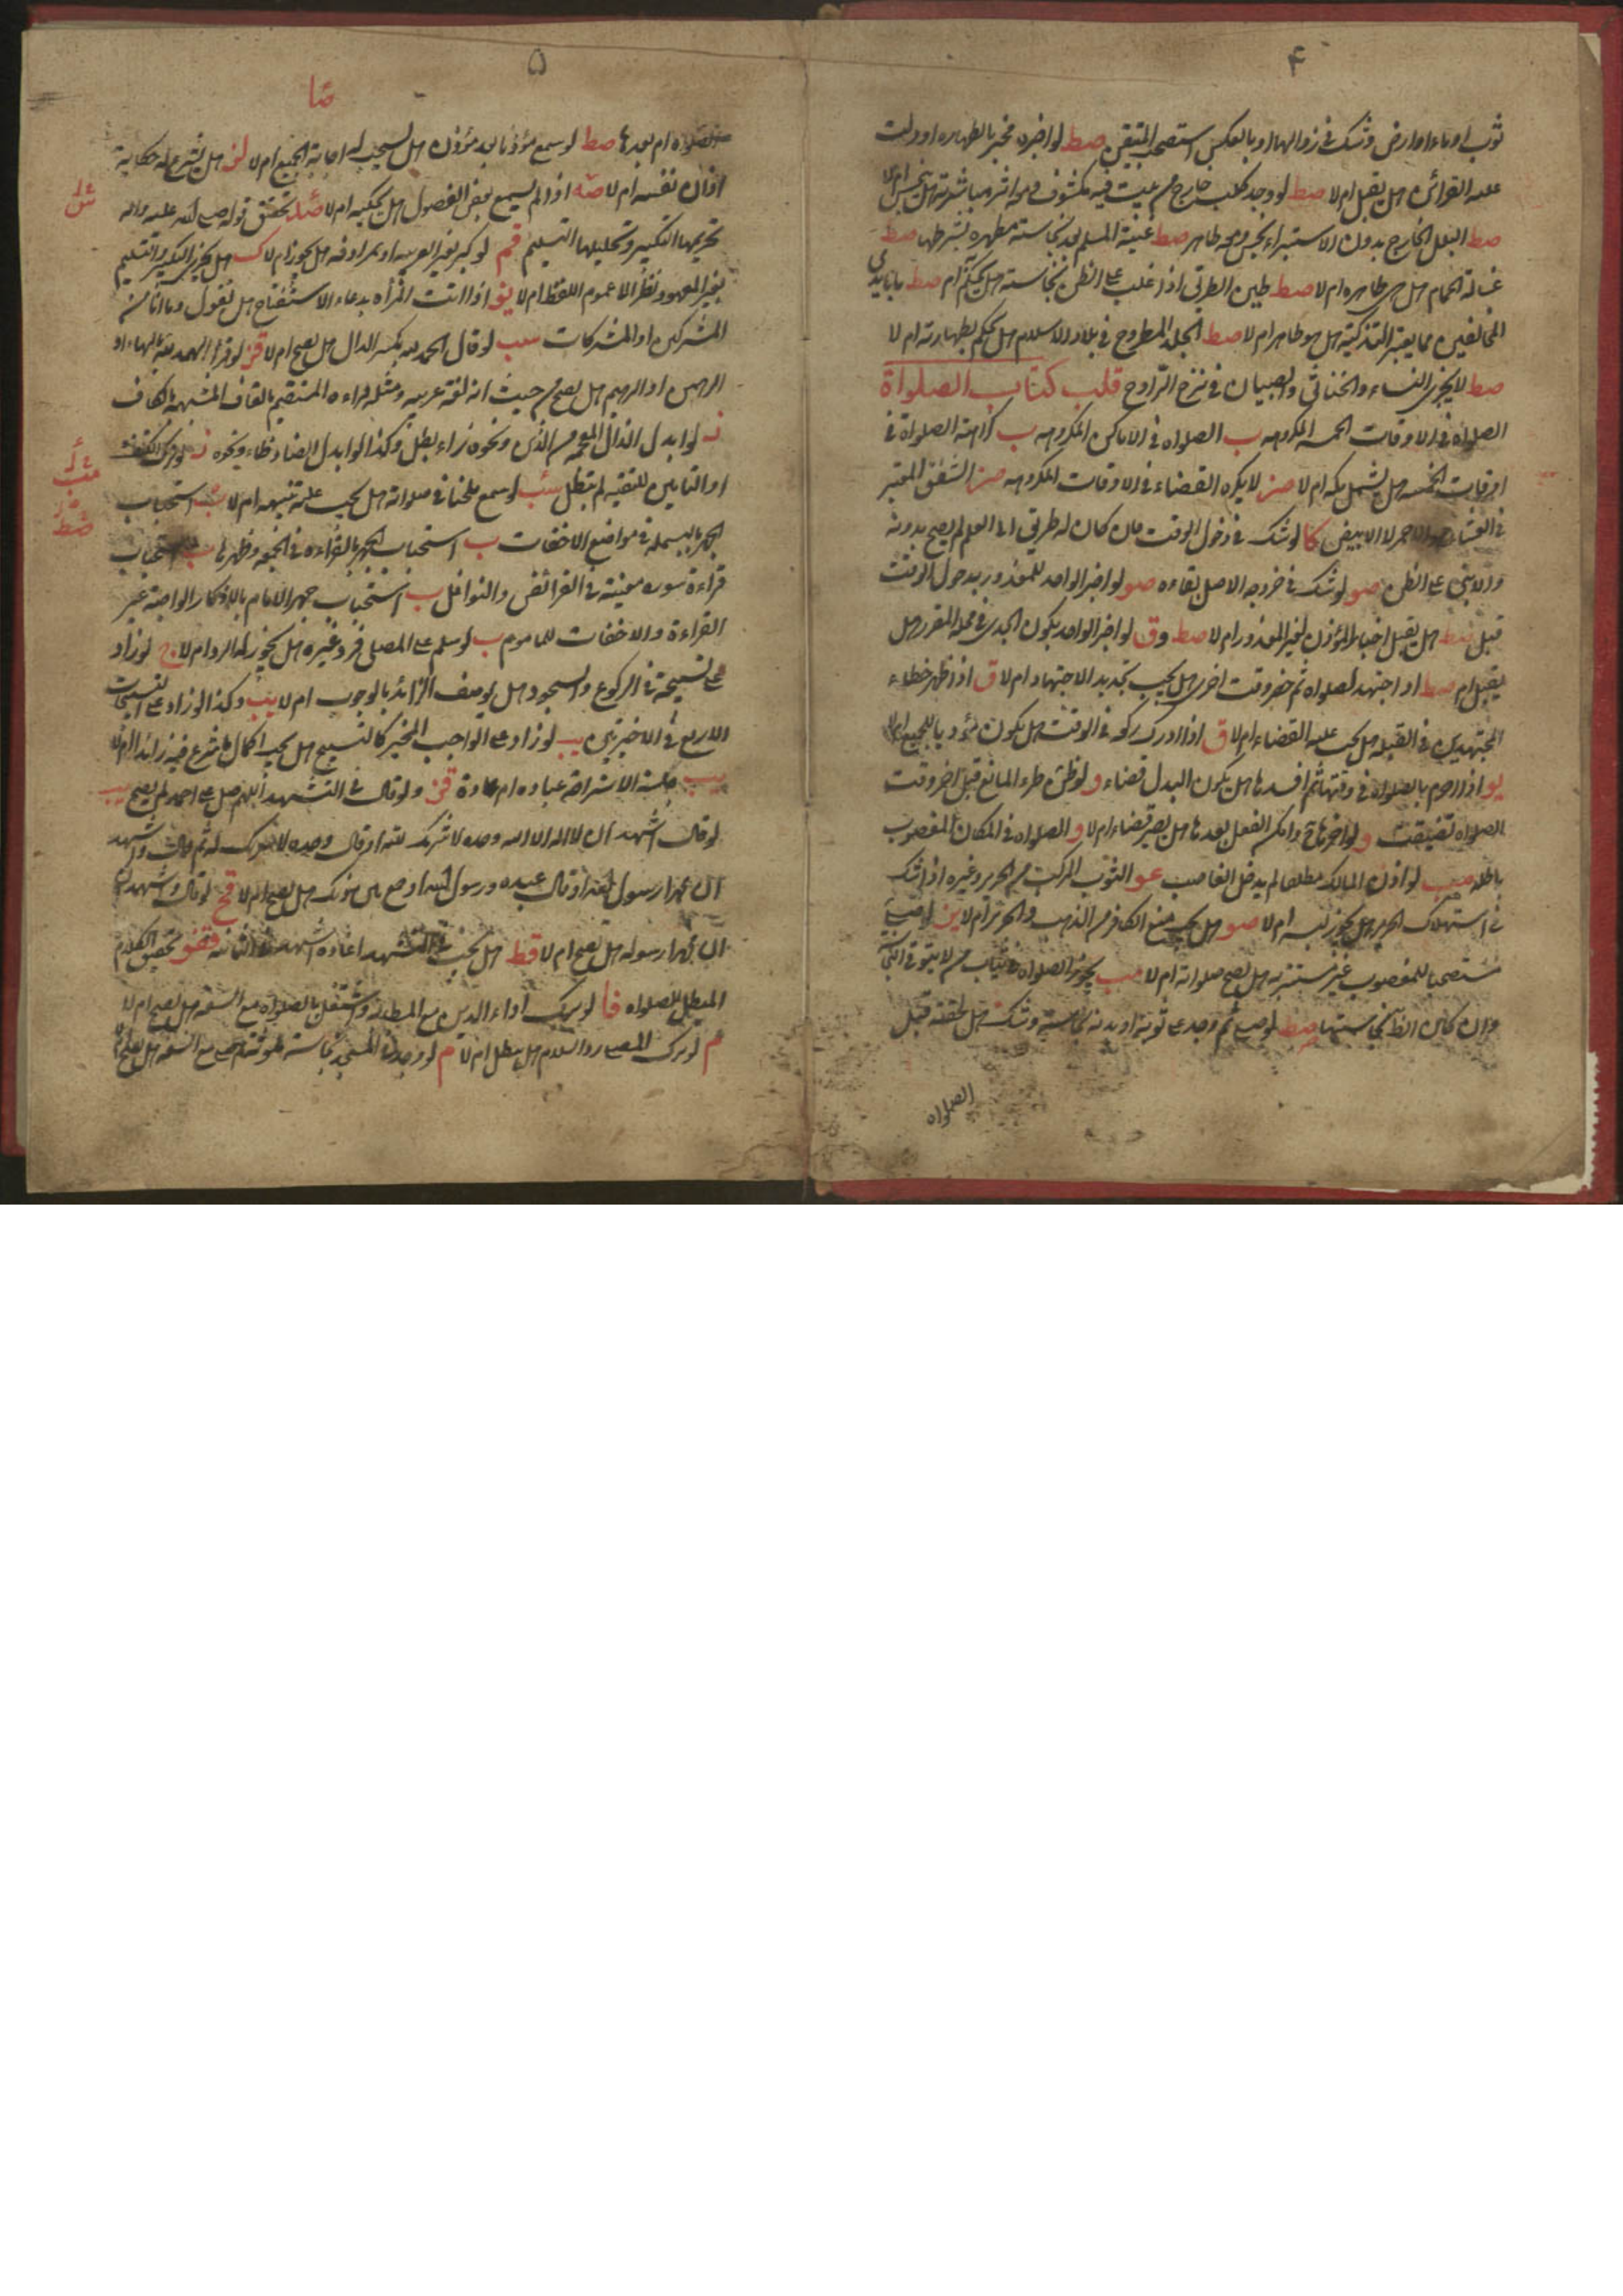 ۴
ثوب او ماء او ارض وشك في زوالها او بالعكس استصحب المتيقن صط لو اخبره مخبر بالطهاره او دلت
عليه القرائن هل يقبل ام لا صط لو وجد كلب خارج من بيت فيه مكشوف فيه اثر مباشرته هل ينجس ام لا
صط البلل الخارج بدون الاستبراء نجس وهو طاهر صط غيبة المسلم بعد نجاسته مطهره بشرطها صط
غسالة الحمام هل هي طاهره ام لا صط طين الطريق اذا غلب على الظن نجاسته هل يحكم ام صط ما بايدي
المخالفين مما يعتبر التذكية هل هو طاهر ام لا صط الجلد المطروح في بلاد الاسلام هل يحكم بطهارته ام لا
صط لا يجزي النساء والخناثى والصبيان في نزح التراوح قلب كتاب الصلواة
الصلواة في الاوقات الخمسه المكروهه ب الصلواه في الاماكن المكروهه ب كراهة الصلواة في
اوقات الخمسه هل يشمل مكه ام لا صز لا يكره القضاء في الاوقات المكروهه صز الشفق المعتبر
في العشاء هو الاحمر لا الابيض كا لو شك في دخول الوقت فان كان له طريق الى العلم لم يصح بدونه
والا بنى على الظن صو لو شك في خروجه الاصل بقاءه صو لو اخبر الواحد للمعذور بدخول الوقت
قبل صط هل يقبل اخبار المؤذن لغير المعذور ام لا صط وق لو اخبر الواحد بكون الجدي في محله المقرر هل
يقبل ام صط اذا اجتهد لصلواه ثم حضر وقت اخرى هل يجب تجديد الاجتهاد ام لا ق اذا ظهر خطاء
المجتهدين في القبله هل يجب عليه القضاء ام لا ق اذا ادرك ركعه في الوقت هل يكون مؤديا للجميع ام لا
يو اذا احرم بالصلواه في وقتها ثم افسدها هل يكون البدل قضاء و لو ظن طرء المانع قبل اخر وقت
الصلواه تضيقت و لو اخرها وامكن الفعل بعدها هل يصير قضاء ام لا و الصلواه في المكان المغصوب
باطله صب لو اذن المالك مطلقا لم يدخل الغاصب عو الثوب المركب من الحرير وغيره اذا شك
في استهلاك الحرير هل يجوز لبسه ام لا صو هل يجب منع الكافر من الذهب والحرير ام لا ين لو صلى
مستصحبا للمغصوب غير مستتر به هل يصح صلواته ام لا صب يجوز الصلواه في ثياب من لا يتوقى النجاسة
وان كان الظن نجاستها صط لو صلى ثم وجد على ثوبه او بدنه نجاسة وشك هل لحقته قبل
الصلواه
۵
الصلواه ام بعدها صط لو سمع مؤذنا بعد مؤذن هل يستحب له اجابة الجميع ام لا لز هل يشرع له حكاية
اذان نفسه ام لا صه اذا لم يسمع بعض الفصول هل يحكيه ام لا صد تحقق قوله صلى الله عليه واله
تحريمها التكبير وتحليلها التسليم قم لو كبر بغير العربيه او بمرادفه هل يجوز ام لا ك هل يجزي التكبير والتسليم
بغير المعهود نظرا الى عموم اللفظ ام لا يو اذا اتت المرأه بدعاء الاستفتاح هل تقول وما انا من
المشركين او المشركات سب لو قال الحمد لله بكسر الدال هل يصح ام لا قز لو قرا الهمد لله بالهاء او
الرهمن او الرهيم هل يصح من حيث انه لغة عربيه ومثله قراءه المستقيم بالقاف المشبهه بالكاف
لو ابدل الذال المعجمه من الذي ونحوه زاء بطل وكذا لو ابدل الضاد ظاء ونحوه
او التامين للتقيه لم تبطل سب لو سمع ملحنا في صلواته هل يجب عليه تنبيهه ام لا ب استحباب
الجهر بالبسمله في مواضع الاخفات ب استحباب الجهر بالقراءه في الجمعه وظهرها ب استحباب
قراءة سوره معينه في الفرائض والنوافل ب استحباب جهر الامام بالاذكار الواجبة غير
القراءة والاخفات للماموم ب لو سلم على المصلي فرد غيره هل يجوز له الرد ام لا ج لو زاد
على تسبيحة في الركوع والسجود هل يوصف الزائد بالوجوب ام لا يب وكذا لو زاد على التسبيحات
الاربع في الاخيرتين يب لو زاد على الواجب المخير كالتسبيح هل يجب اكمال ما شرع فيه زائدا ام لا
يب جلسة الاستراحة عباده ام عادة قز ولو قال في التشهد اللهم صل على احمد لم يصح يب
لو قال اشهد ان لا اله الا الله وحده لا شريك لله او قال وحده لا شريك له ثم قال واشهد
ان محمدا رسول الله او قال عبده ورسول الله هل يصح ام لا قح لو قال واشهد ان
ان محمدا رسوله هل يصح ام لا قط هل يجب في التشهد اعاده اشهد في الثانيه قفو تحقيق الكلام
المبطل للصلواه فا لو ترك اداء الدين مع المطالبه واشتغل بالصلواه مع السعه هل يصح ام لا
م لو ترك المصلي رد السلام هل يبطل ام لا م لو وجد في المسجد نجاسة ملوثة مع السعه هل يصح ام لا